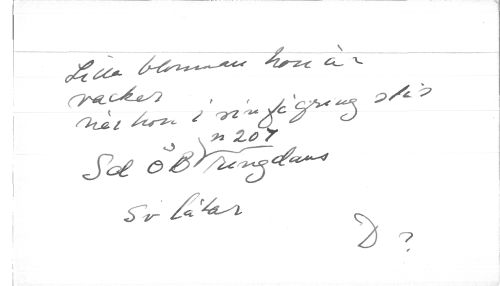 Lilla blomman hon är
vacker
när hon i sin fägring står
n 207
Sd ÖB ringdans
Sv låtar
D ?